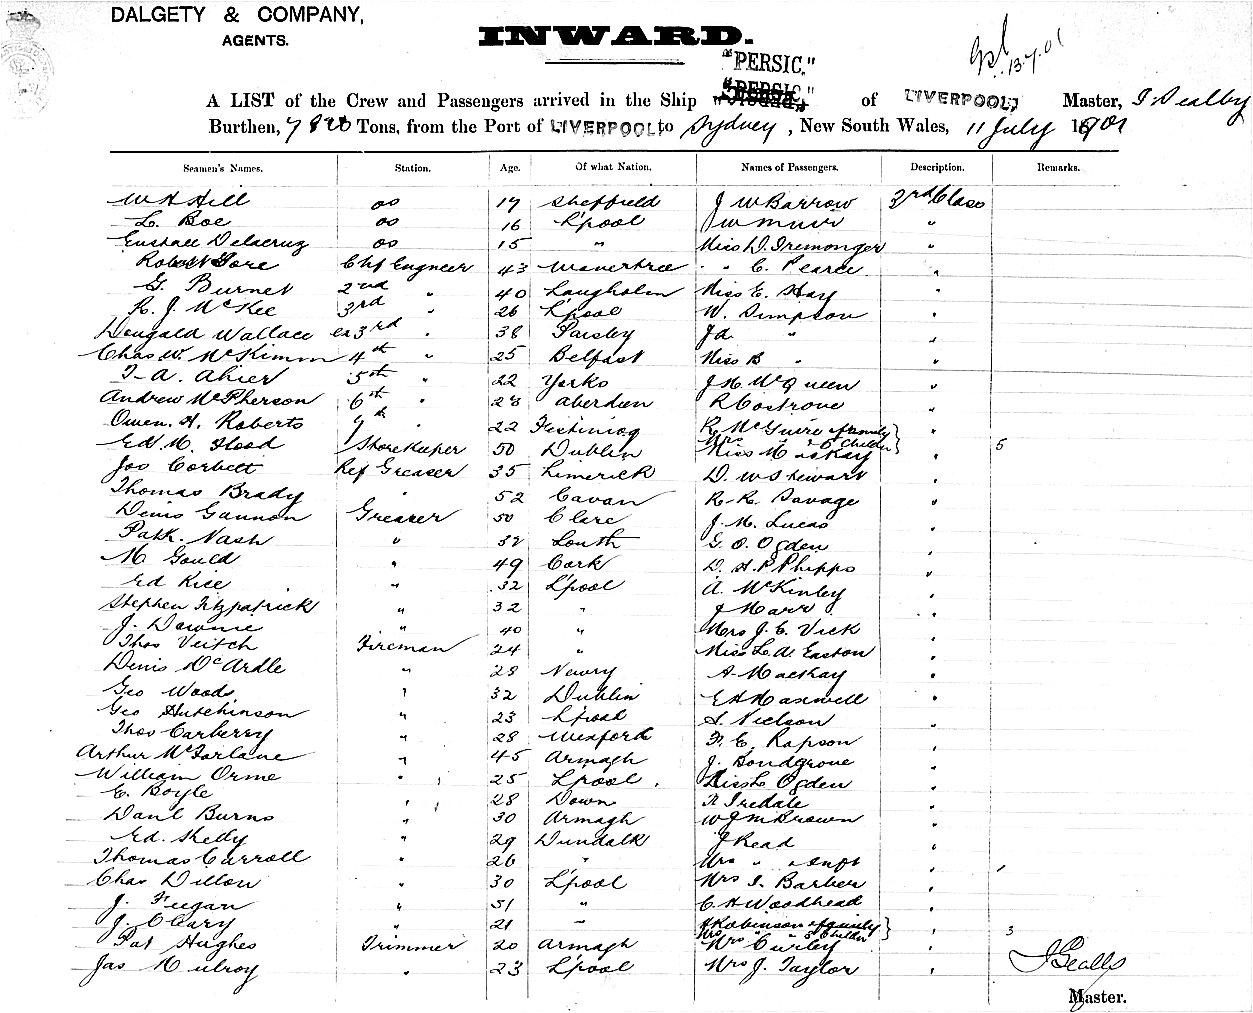 DALGETY & COMPANY,
AGENTS.
INWARD.
"PERSIC."
13.7.01
A LIST of the Crew and Passengers arrived in the Ship "PERSIC" of LIVERPOOL, Master,
Burthen, Tons, from the Port of LIVERPOOL to Sydney, New South Wales, 11 July 1901
Seamen's Names. Station. Age. Of what Nation. Names of Passengers. Description. Remarks.
W H Hill OS 17 Sheffield J W Barrow 3rd Class
L. Boe OS 16 L'pool J W Muir "
Eustace Delacruz OS 15 " Miss D. Iremonger "
Robert Gore Chf Engneer 43 Wavertree " C. Pearce "
G. Burnet 2nd " 40 Langholm Miss E. Hay "
R. J. McKee 3rd " 26 L'pool W. Simpson "
Dougald Wallace ex 3rd " 38 Paisley Jd " "
Chas W. McKimm 4th " 25 Belfast Miss B " "
T. A. Ahier 5th " 22 Yorks J H McQueen "
Andrew McPherson 6th " 28 Aberdeen R Costrove "
Owen. H. Roberts 7th 22 Festiniog R McGuire & family "
Ed M. Flood Storekeeper 50 Dublin Mrs " 5 Childn 5
Miss M Askay "
Jos Corbett Ref Greaser 35 Limerick D. W Stewart "
Thomas Brady " 52 Cavan R. R. Savage "
Denis Gannon Greaser 50 Clare J. M. Lucas "
Patk. Nash " 32 Louth G. O. Ogden "
M Gould " 49 Cork D. H. P Phipps "
Ed Rice " 32 L'pool A. McKinley "
Stephen Fitzpatrick " 32 " J Marr "
J. Downie " 40 " Mrs J. E. Vick "
Thos Veitch Fireman 24 " Miss L. A. Easton "
Denis McArdle " 28 Newry A. Mackay "
Geo Woods " 32 Dublin E H Maxwell "
Geo Hutchinson " 23 L'pool A. Nielson "
Thos Carberry " 28 Wexford F. E. Rapson "
Arthur McFarlane " 45 Armagh J. Bondgrove "
William Orme " 25 L'pool Miss L Ogden "
C. Boyle " 28 Down R Iredale "
Danl Burns " 30 Armagh W J M Brown "
Ed. Skelly " 29 Dundalk J Read "
Thomas Carroll " 26 " Mrs " & Inft "
Chas Dillon " 30 L'pool Mrs I. Barber "
J. Feegan " 51 " C. H Woodhead "
J. Cleary " 21 " H Robinson & family "
Mrs " 3 Childn 3
Pat Hughes Trimmer 20 Armagh Mrs Curley "
Jas Mulroy " 23 L'pool Mrs J. Taylor "
Master.